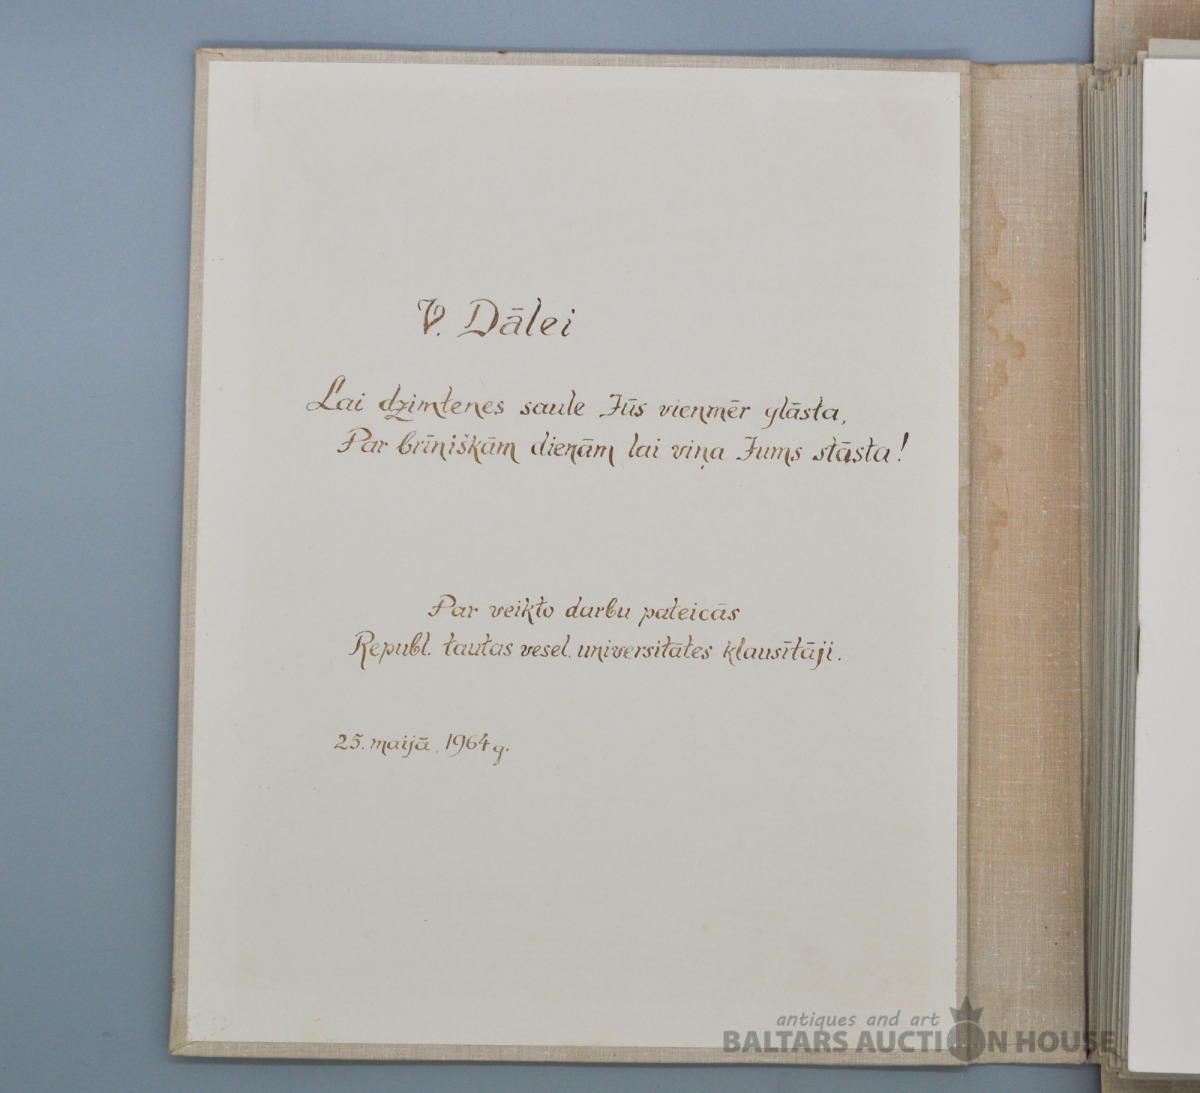 V. Dālei
Lai dzimtenes saule Jūs vienmēr glāsta,
Par brīnišķām dienām lai viņa Jums stāsta!
Par veikto darbu pateicās
Republ. tautas vesel. universitātes klausītāji.
25. maijā, 1964 g.
antiques and art
BALTARS AUCTION HOUSE